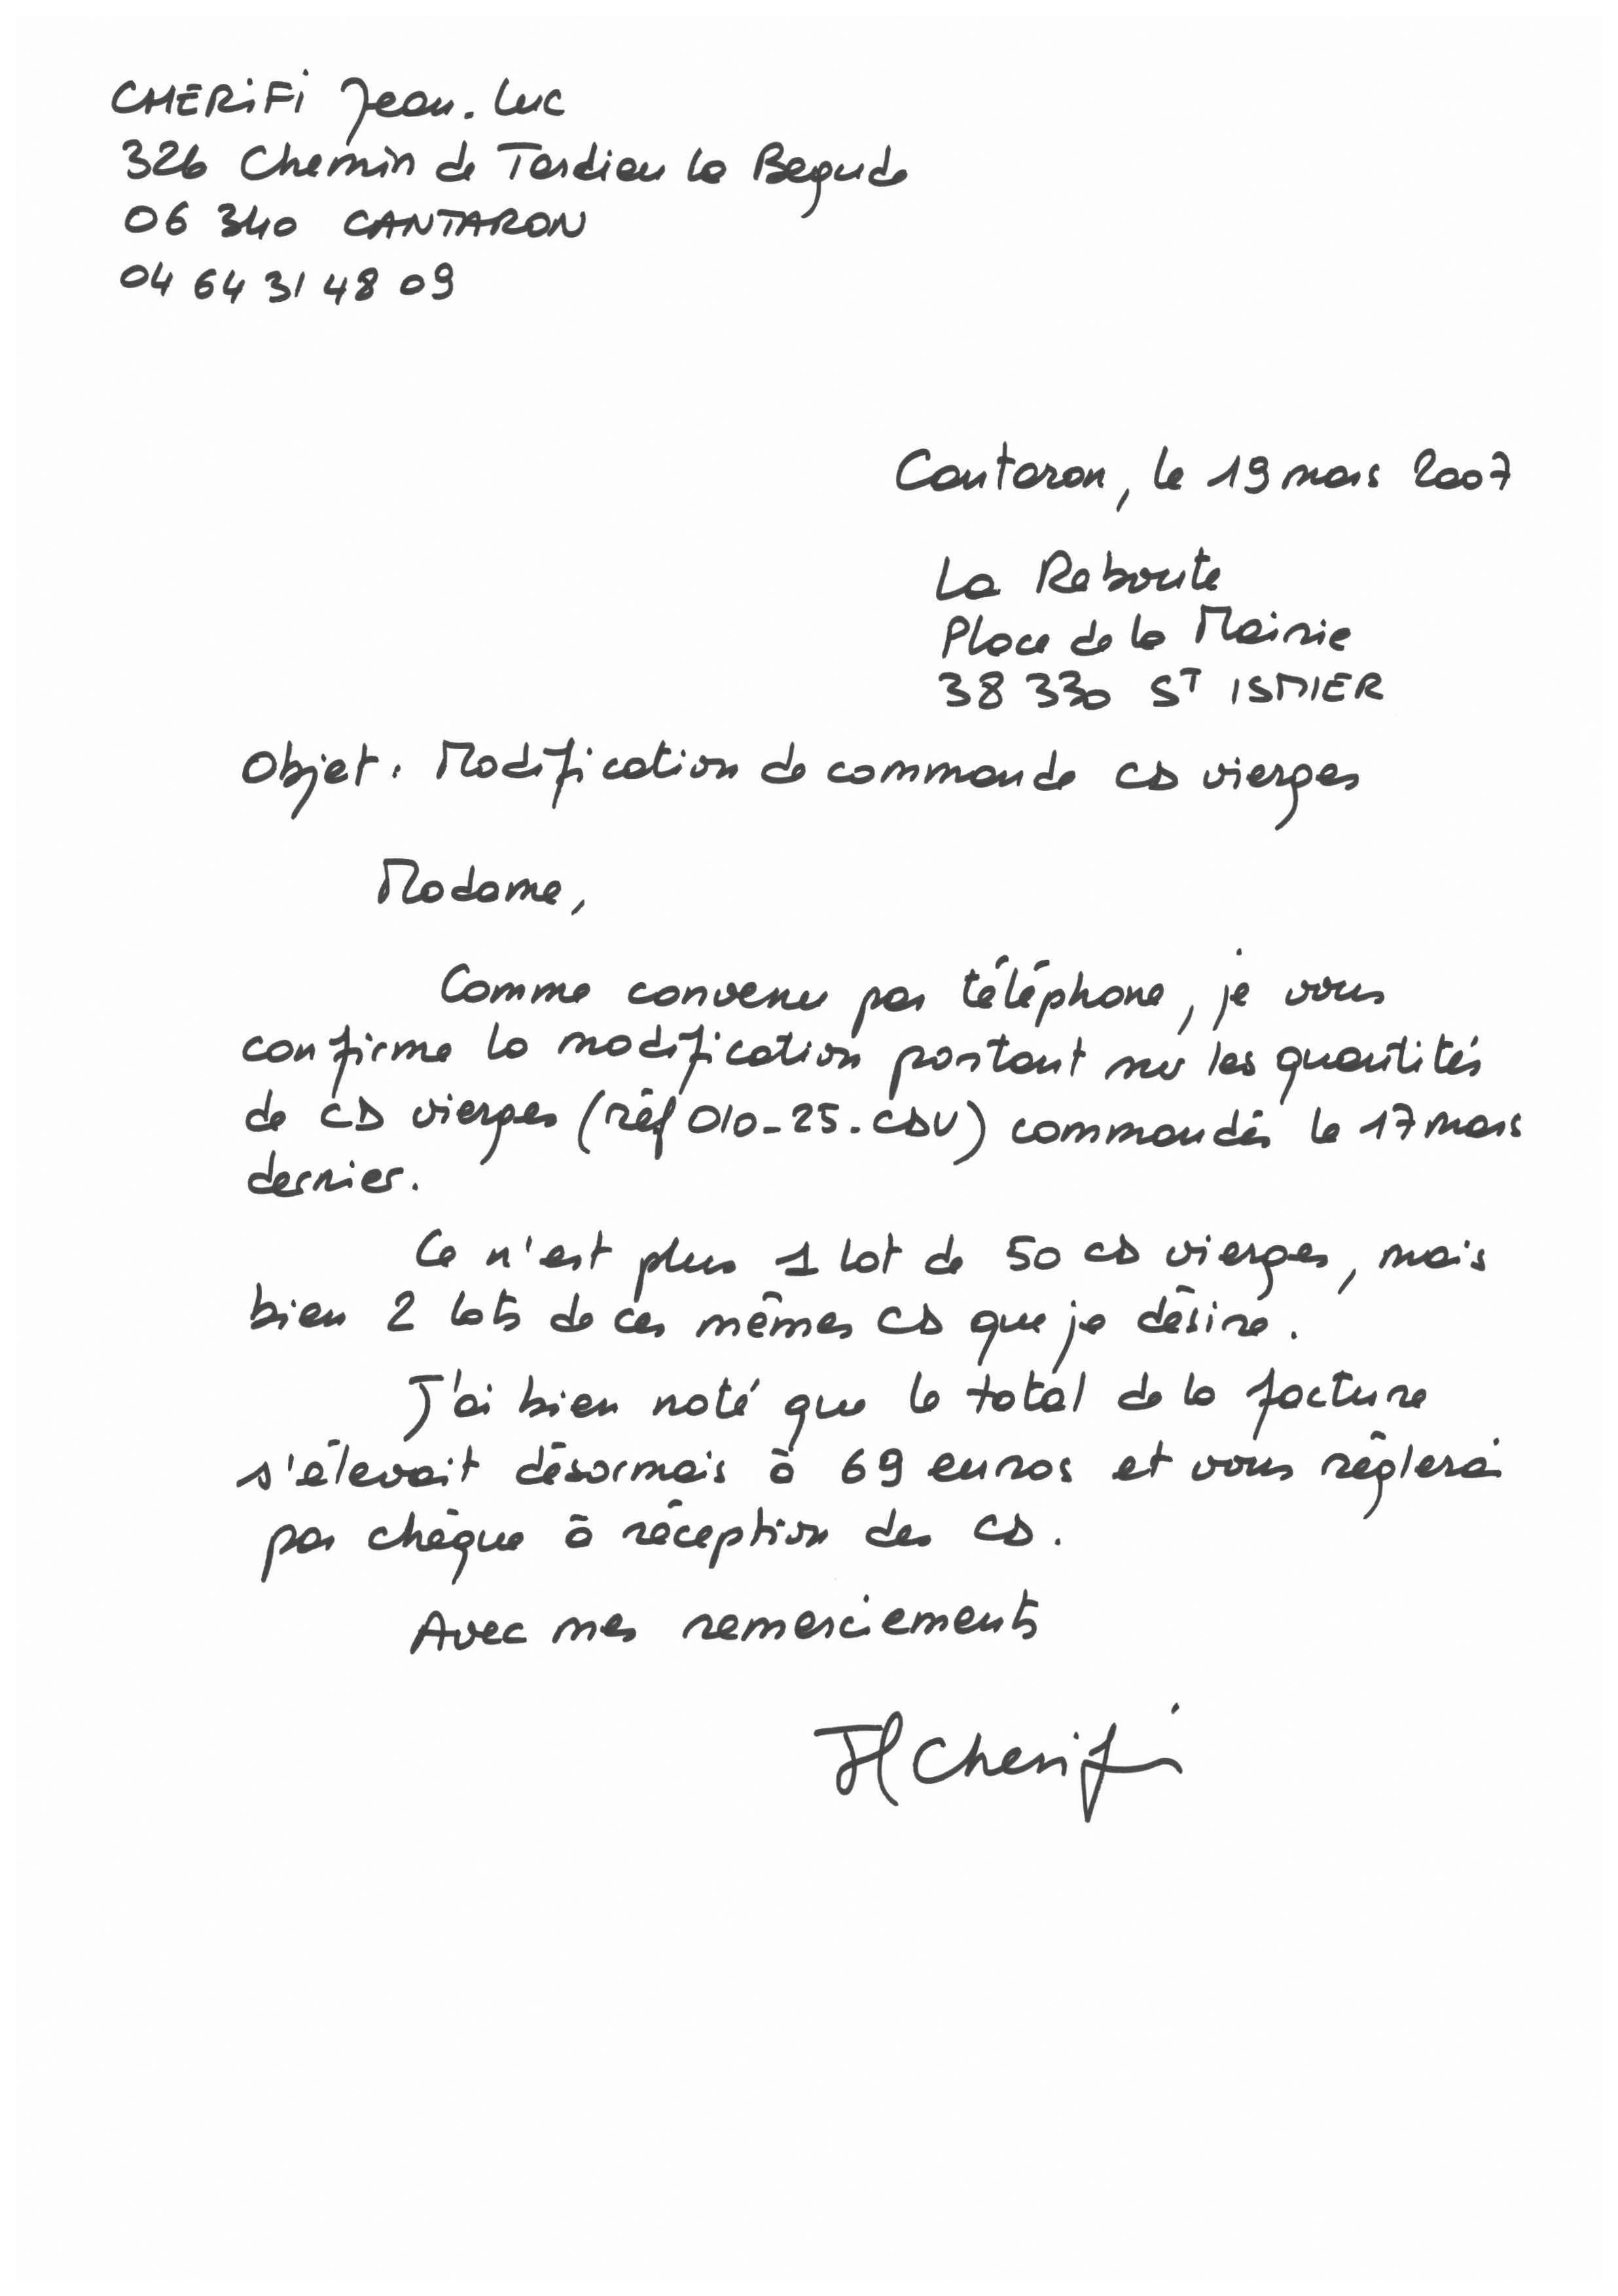 CHERIFI Jean-Luc
326 Chemin de Tardieu la Begude
06 340 CANTARON
04 64 31 48 09
Cantaron, le 19 mars 2007
La Reboute
Place de la Mairie
38 330 ST ISMIER
Objet : Modification de commande CD vierges
Madame,
Comme convenu par téléphone, je vous
confirme la modification portant sur les quantités
de CD vierges (réf 010-25-CDV) commandés le 17 mars
dernier.
Ce n'est plus 1 lot de 50 CD vierges, mais
bien 2 lots de ces mêmes CD que je désire.
J'ai bien noté que le total de la facture
s'élevait désormais à 69 euros et vous règlerai
par chèque à réception des CD.
Avec mes remerciements
JL Cherifi